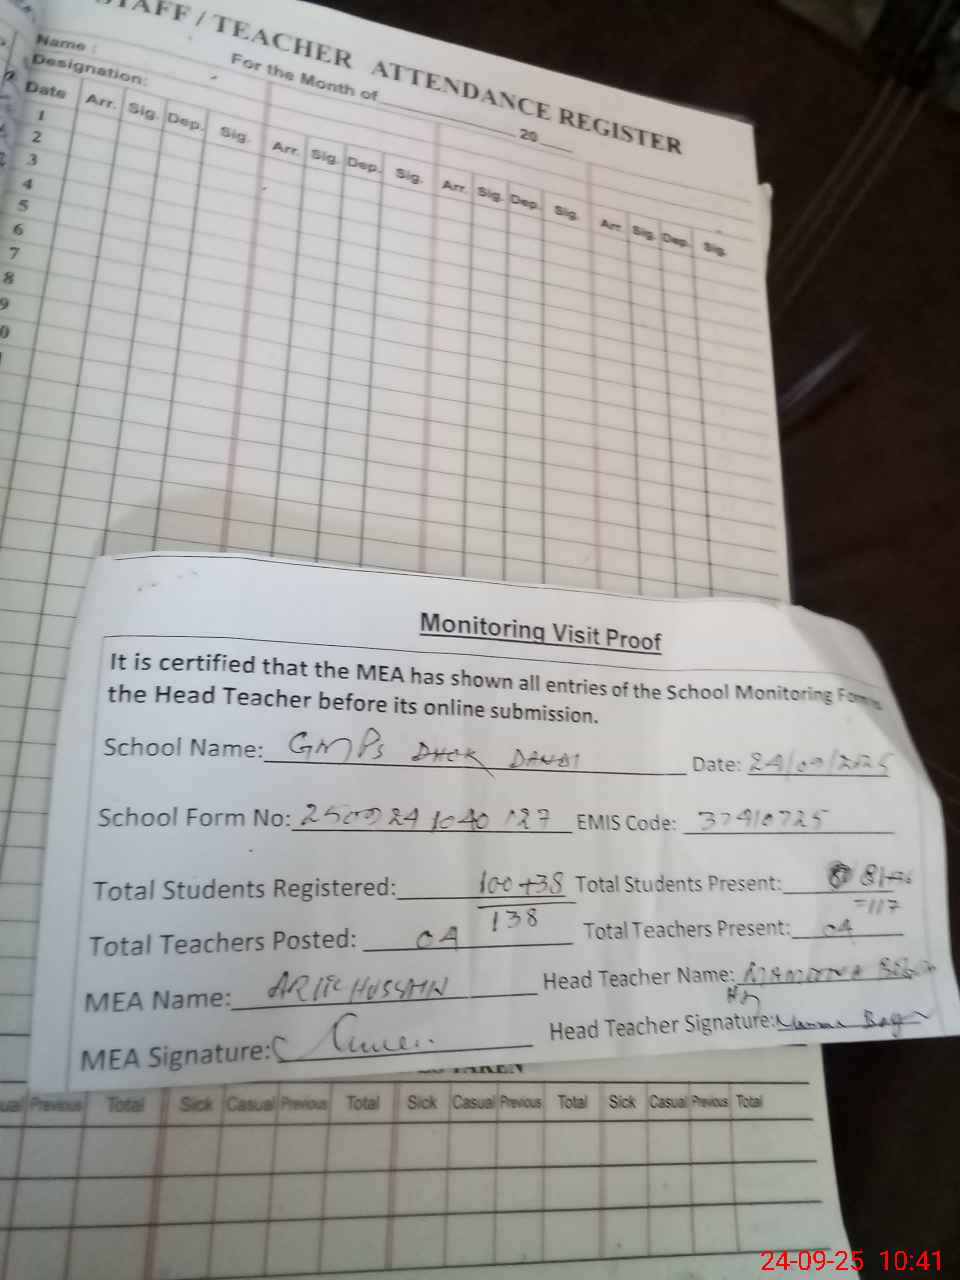 STAFF / TEACHER ATTENDANCE REGISTER
Name :
For the Month of 20
Designation:
Date Arr. Sig. Dep. Sig. Arr. Sig. Dep. Sig. Arr. Sig. Dep. Sig. Arr. Sig. Dep. Sig.
1
2
3
4
5
6
7
8
9
0
Monitoring Visit Proof
It is certified that the MEA has shown all entries of the School Monitoring
the Head Teacher before its online submission.
School Name: GMPS DHOK Date: 24/09/2025
School Form No: EMIS Code: 37410725
Total Students Registered: 100+38 Total Students Present: 81+36
138 =117
Total Teachers Posted: 04 Total Teachers Present: 04
MEA Name: Head Teacher Name:
MEA Signature: Head Teacher Signature:
TAKEN
Previous Total Sick Casual Previous Total Sick Casual Previous Total Sick Casual Previous Total
24-09-25 10:41